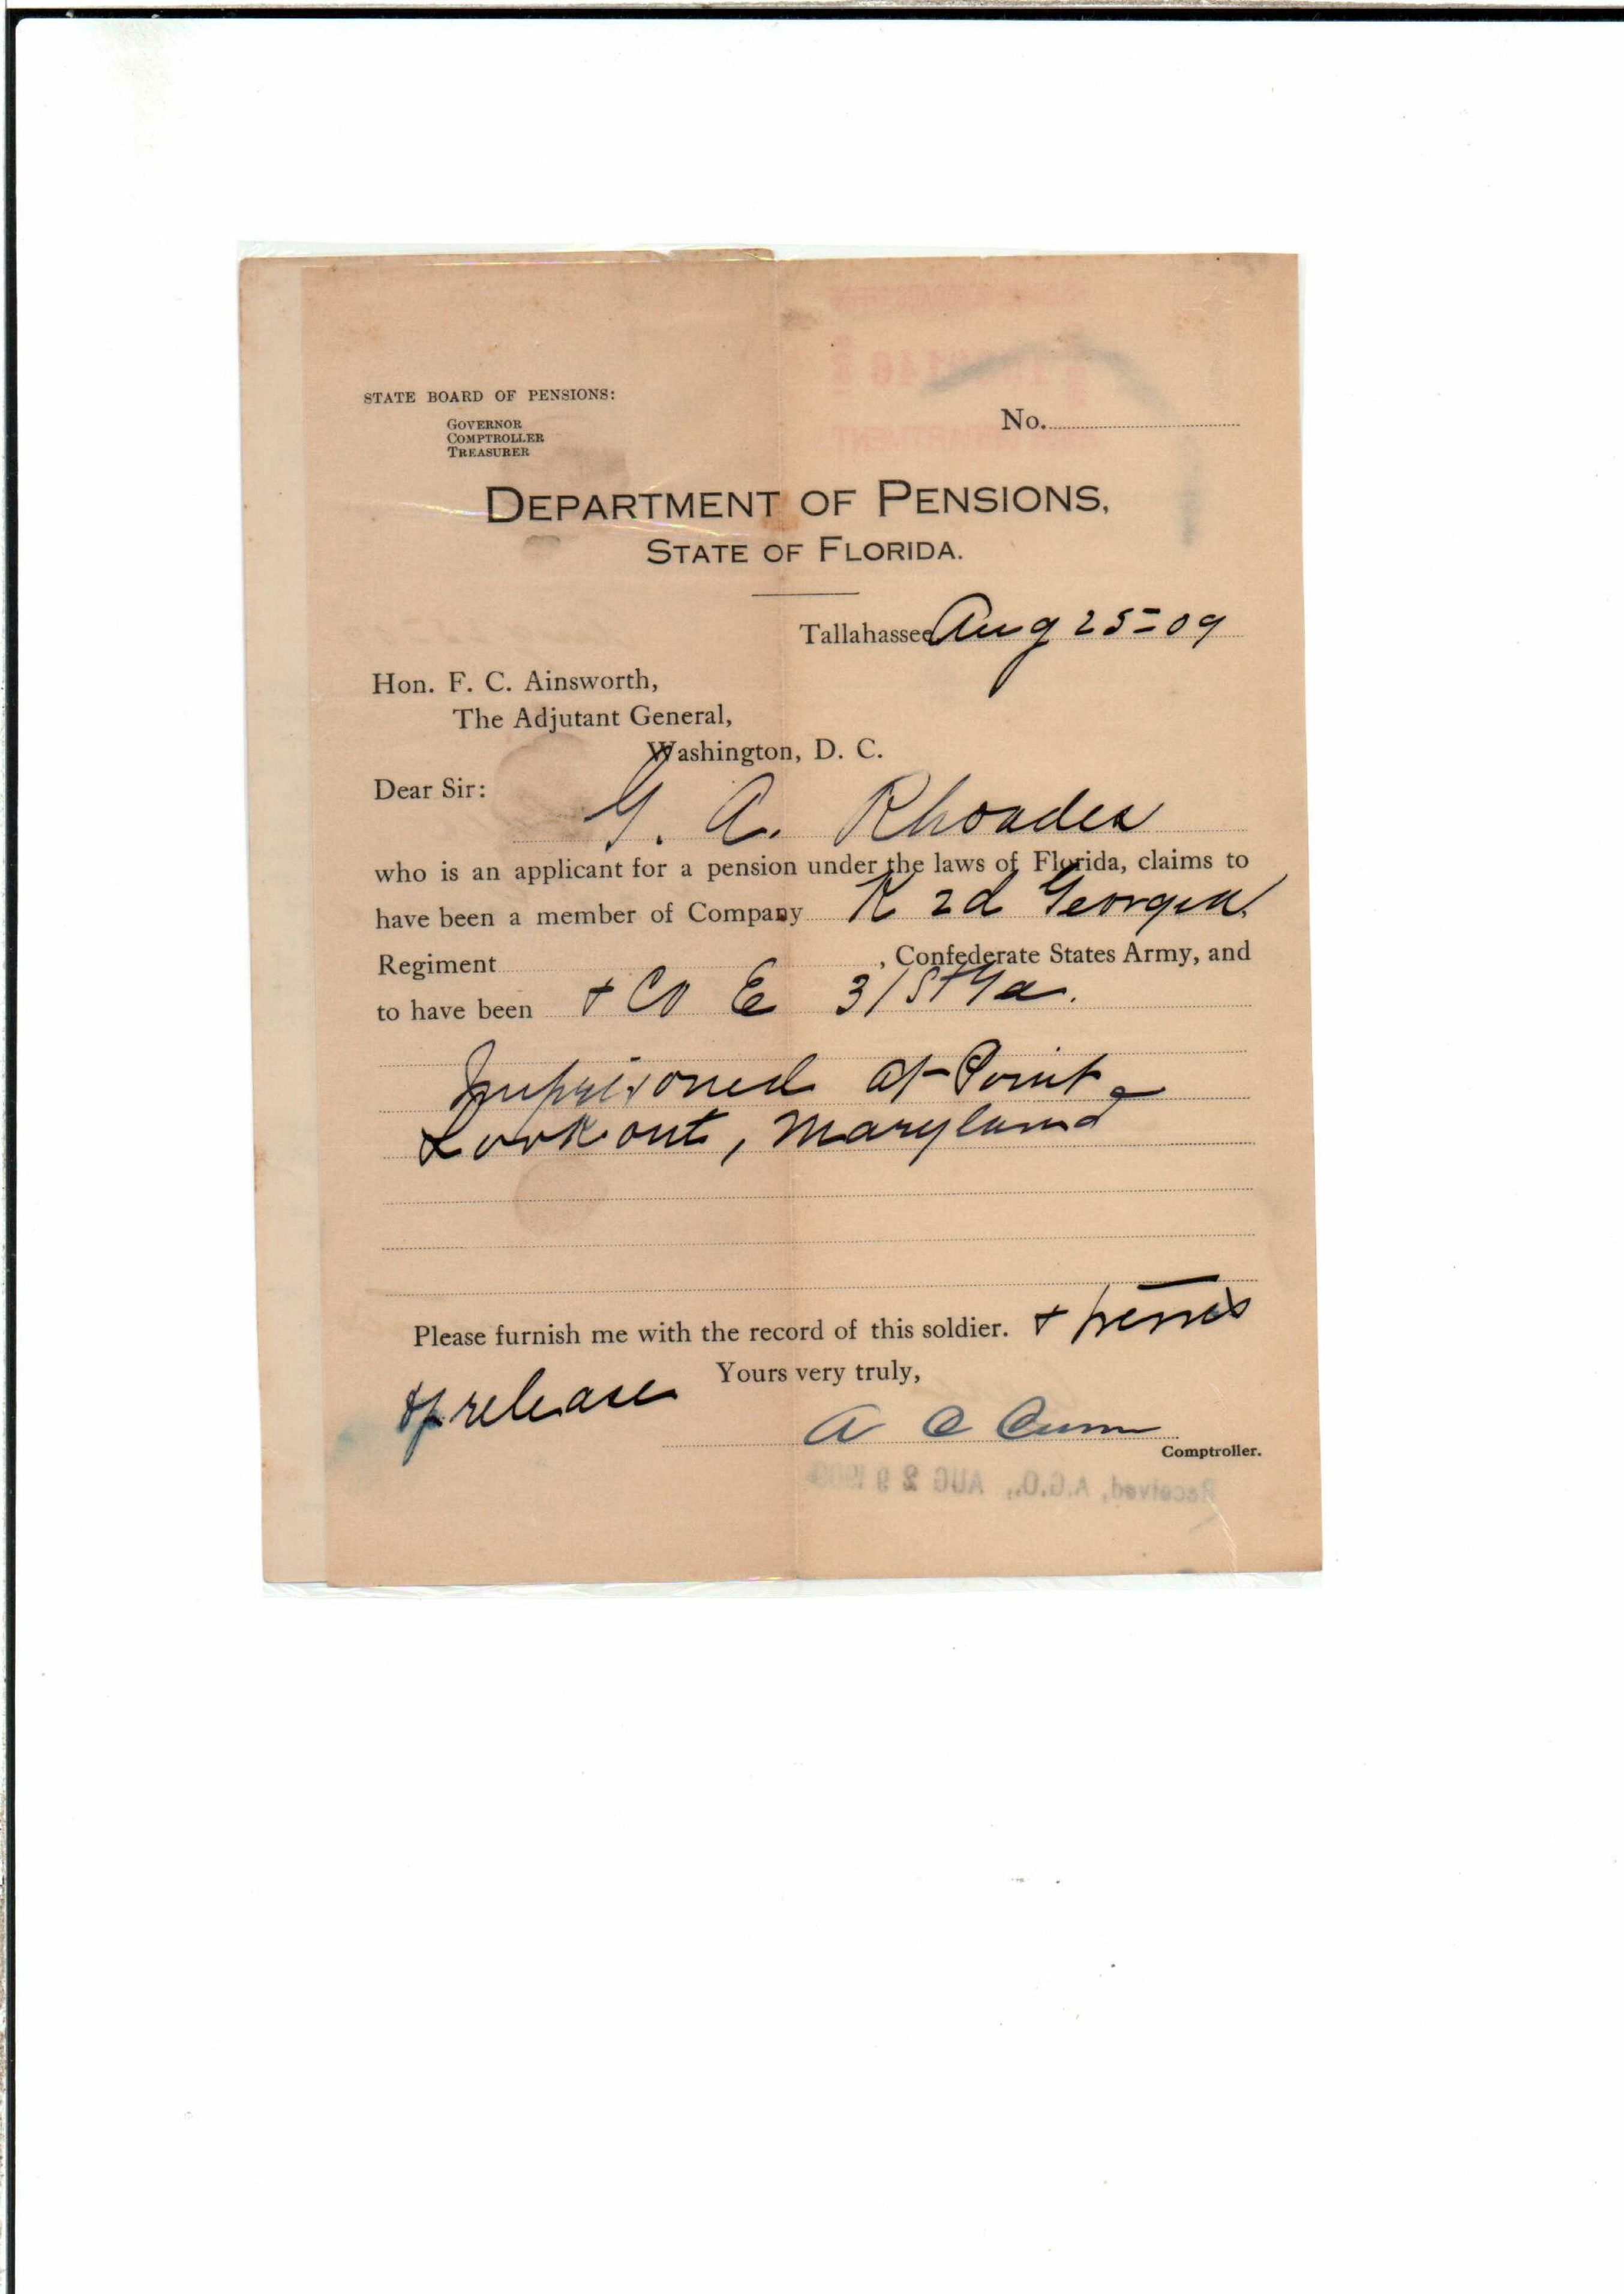 STATE BOARD OF PENSIONS:
GOVERNOR
COMPTROLLER
TREASURER
No.
DEPARTMENT OF PENSIONS,
STATE OF FLORIDA.
Tallahassee Aug 25=09
Hon. F. C. Ainsworth,
The Adjutant General,
Washington, D. C.
Dear Sir:
G. A. Rhoades
who is an applicant for a pension under the laws of Florida, claims to
have been a member of Company K 2d Georgia
Regiment , Confederate States Army, and
to have been + Co E 31st Ga.
Imprisoned at Point
Lookout, Maryland
Please furnish me with the record of this soldier. +
of release Yours very truly,
A C Croom
Comptroller.
Received, A.G.O., AUG 29 1909